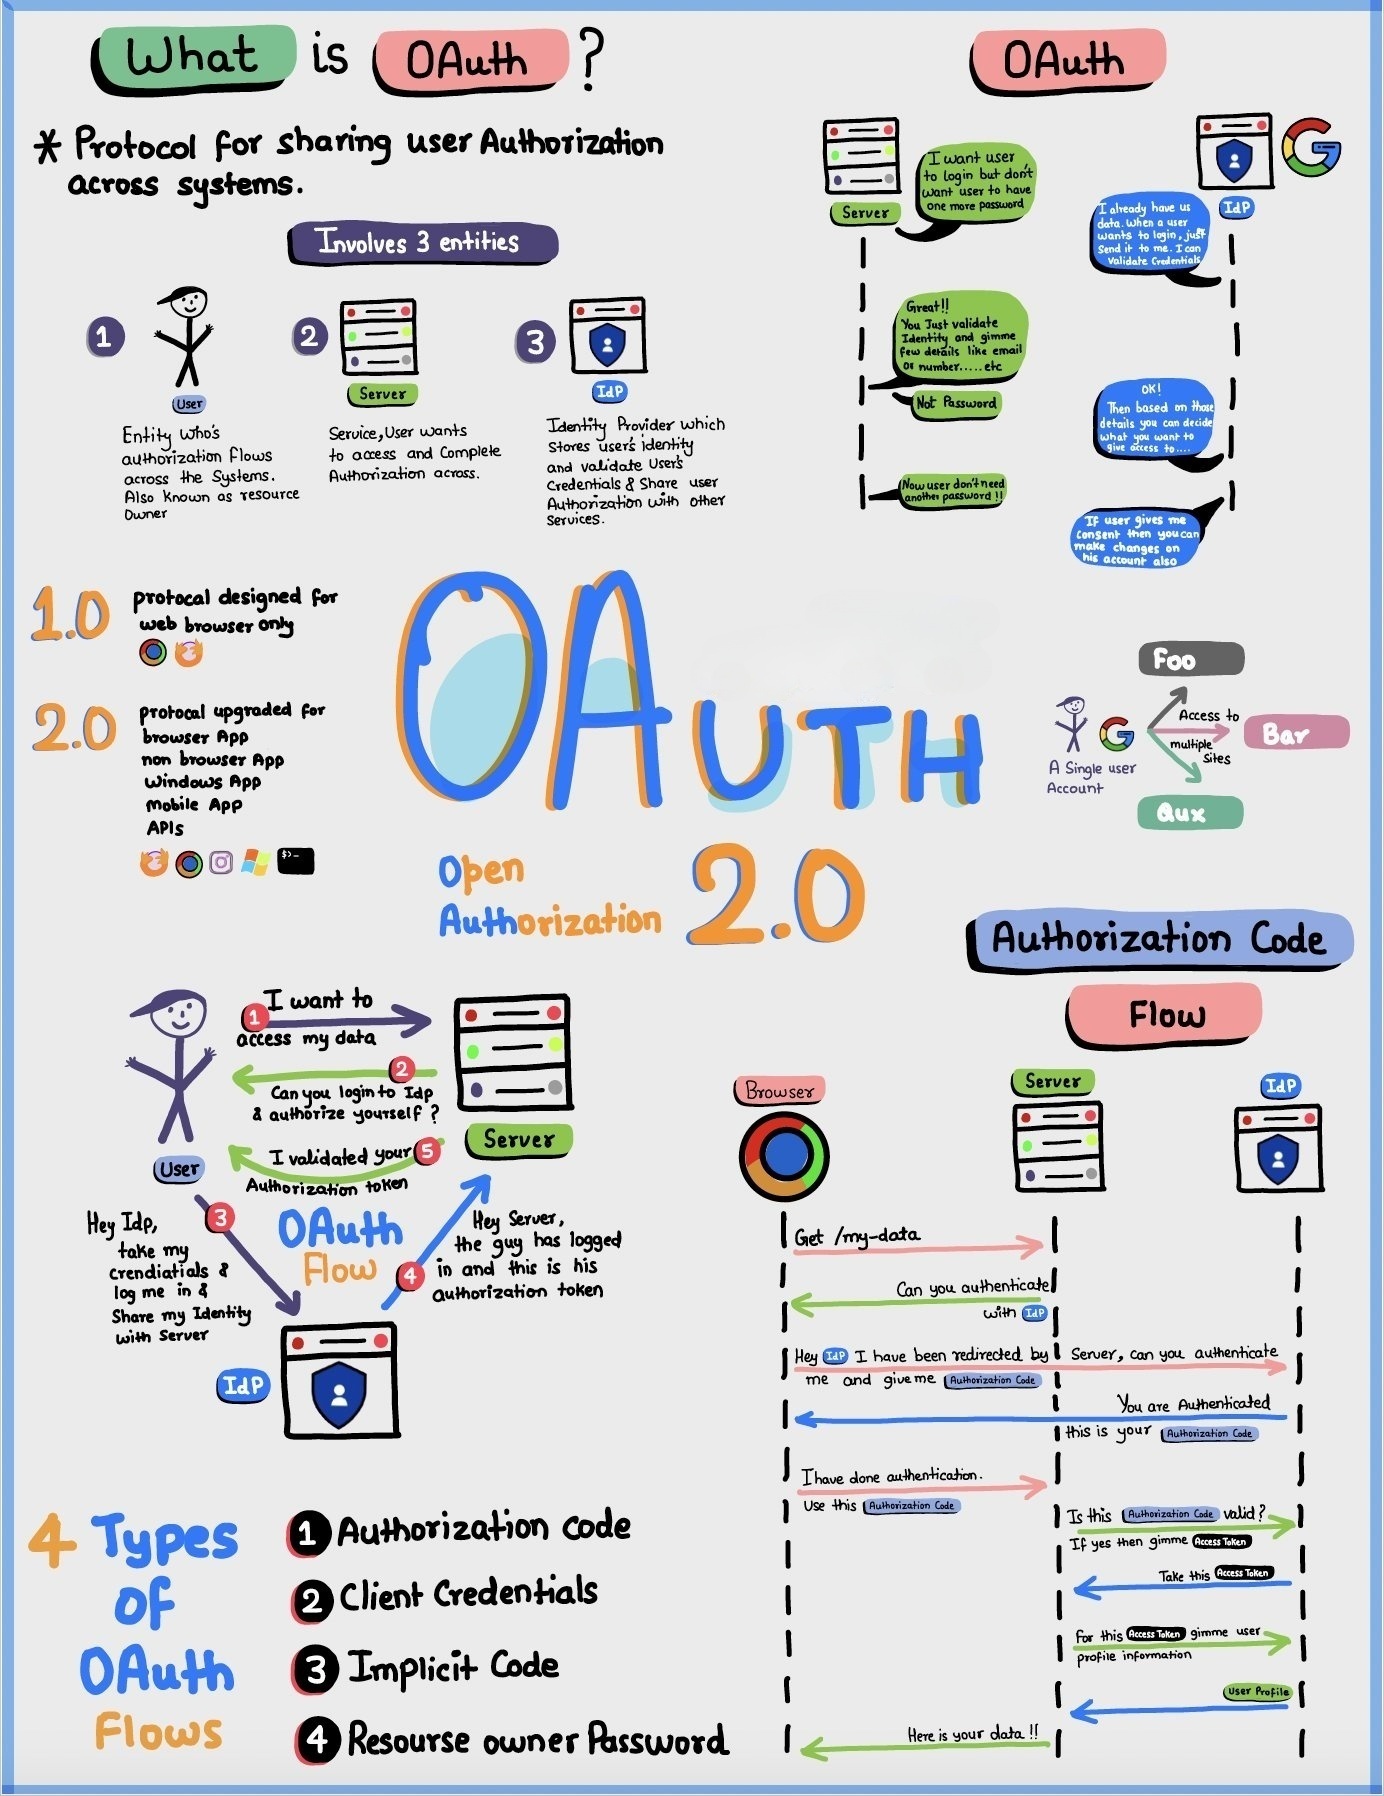 What is OAuth ?
* Protocol for sharing user Authorization
across systems.
Involves 3 entities
1
User
Entity Who's
authorization flows
across the Systems.
Also Known as resource
Owner
2
Server
Service, User wants
to access and Complete
Authorization across.
3
IdP
Identity Provider which
Stores user's identity
and validate User's
Credentials & Share user
Authorization with other
Services.
OAuth
Server
IdP
I want user
to login but don't
want user to have
one more password
I already have us
data. When a user
wants to login, just
send it to me. I can
validate Credentials
Great!!
You Just validate
Identity and gimme
few details like email
or number.....etc
Not Password
OK!
Then based on those
details you can decide
what you want to
give access to....
Now user don't need
another password !!
If user gives me
consent then you can
make changes on
his account also
1.0
protocal designed for
web browser only
2.0
protocal upgraded for
browser App
non browser App
Windows App
Mobile App
APIs
$>_
OAUTH
Open
Authorization
2.0
A Single user
Account
Access to
multiple
Sites
Foo
Bar
Qux
User
Server
IdP
OAuth
Flow
1
I want to
access my data
2
Can you login to Idp
& authorize yourself ?
5
I validated your
Authorization token
3
Hey Idp,
take my
crendiatials &
log me in &
Share my Identity
with Server
4
Hey Server,
the guy has logged
in and this is his
authorization token
Authorization Code
Flow
Browser
Server
IdP
Get /my-data
Can you authenticate
with IdP
Hey IdP I have been redirected by Server, can you authenticate
me and give me Authorization Code
You are Authenticated
this is your Authorization Code
I have done authentication.
Use this Authorization Code
Is this Authorization Code valid?
If yes then gimme Access Token
Take this Access Token
For this Access Token gimme user
profile information
User Profile
Here is your data !!
4 Types
of
OAuth
Flows
1 Authorization code
2 Client Credentials
3 Implicit Code
4 Resourse owner Password